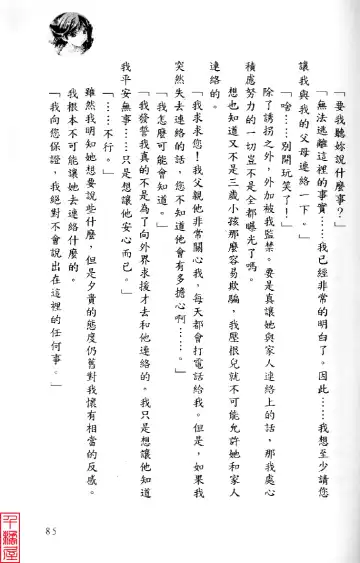 「要我聽妳說什麼事？」
「無法逃離這裡的事實……我已經非常的明白了。因此……我想至少請您
讓我與我的父母連絡一下。」
「啥……別開玩笑了！」
除了誘拐之外，外加被我監禁。要是真讓她與家人連絡上的話，那我處心
積慮努力的一切豈不是全都曝光了嗎。
想也知道又不是三歲小孩那麼容易欺騙，我壓根兒就不可能允許她和家人
連絡的。
「我求求您！我父親他非常關心我，每天都會打電話給我。但是，如果我
突然失去連絡的話，您不知道他會有多擔心啊……。」
「我怎麼可能會知道。」
「我發誓我真的不是為了向外界求援才去和他連絡的。我只是想讓他知道
我平安無事……只是想讓他安心而已。」
「……不行。」
雖然我明知她想要說些什麼，但是夕貴的態度仍舊對我懷有相當的反感。
我根本不可能讓她去連絡什麼的。
「我向您保證，我絕對不會說出在這裡的任何事。」
85
千濔屋